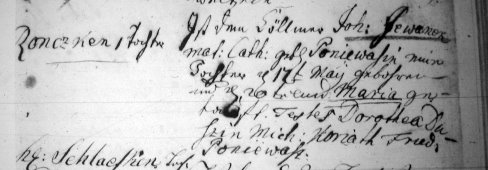 Zonczken 1 Tochter
Ist dem Cöllmer Joh: Sewaner
mat: Cath: geb: Poniewasin eine
Tochter d 17t May gebohren
und d. 20 Maria ge-
tauft. Testes Dorothea Du-
szin Mich: Horiath Fried:
Poniewasz.
Kl: Schlaesken